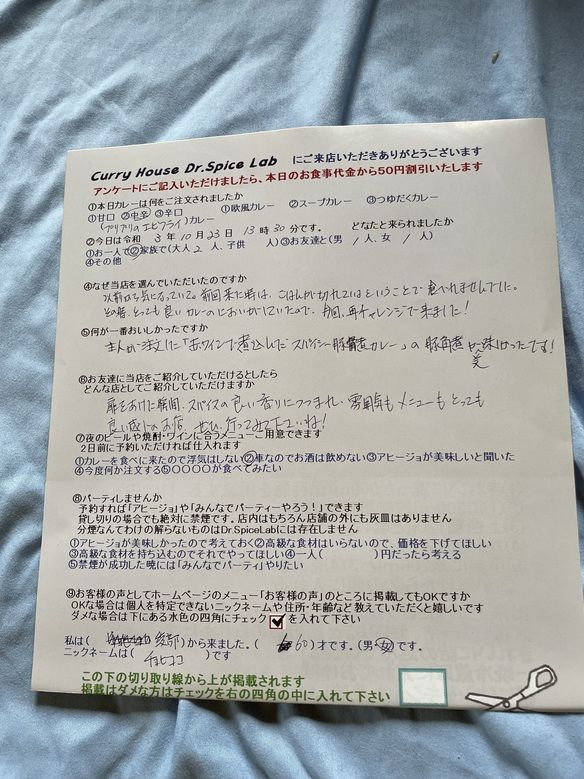 Curry House Dr.Spice Lab にご来店いただきありがとうございます
アンケートにご記入いただけましたら、本日のお食事代金から50円割引いたします
①本日カレーは何をご注文されましたか
①甘口 ②中辛 ③辛口 ①欧風カレー ②スープカレー ③つゆだくカレー
(プリプリのエビフライ)カレー
②今日は令和 3年 10月 23日 13時 30分です。 どなたと来られましたか
①お一人で②家族で(大人 2人、子供 人)③お友達と(男 1人、女 1人)
④その他
④なぜ当店を選んでいただいたのですか
以前から気になっていて。前回来た時は、ごはんが切れているということで食べれませんでした。
その時、とっても良いカレーのにおいがしていたので、今回、再チャレンジで来ました!
⑤何が一番おいしかったですか
主人が注文した「赤ワインで煮込んだスパイシー豚角煮カレー」の豚角煮が美味しかったです!
⑥お友達に当店をご紹介していただけるとしたら
どんな店としてご紹介していただけますか
扉をあけた瞬間、スパイスの良い香りにつつまれ、雰囲気もメニューもとっても
良い感じのお店、ぜひ、行ってみて下さいね!
⑦夜のビールや焼酎・ワインに合うメニューご用意できます
2日前に予約いただければ仕入れます
①カレーを食べに来たので浮気はしない②車なのでお酒は飲めない③アヒージョが美味しいと聞いた
④今度何か注文する⑤〇〇〇〇が食べてみたい
⑧パーティしませんか
予約すれば「アヒージョ」や「みんなでパーティーやろう!」できます
貸し切りの場合でも絶対に禁煙です。店内はもちろん店舗の外にも灰皿はありません
分煙なんてわけの解らないものはDr.SpiceLabには存在しません
①アヒージョが美味しかったので考えておく②高級な食材はいらないので、価格を下げてほしい
③高級な食材を持ち込むのでそれでやってほしい④一人( )円だったら考える
⑤禁煙が成功した暁には「みんなでパーティ」やりたい
⑨お客様の声としてホームページのメニュー「お客様の声」のところに掲載してもOKですか
OKな場合は個人を特定できないニックネームや住所・年齢など教えていただくと嬉しいです
ダメな場合は下にある水色の四角にチェック を入れて下さい
私は( )から来ました。( 60)才です。(男・女)です。
ニックネームは( チョビココ )です
この下の切り取り線から上が掲載されます
掲載はダメな方はチェックを右の四角の中に入れて下さい